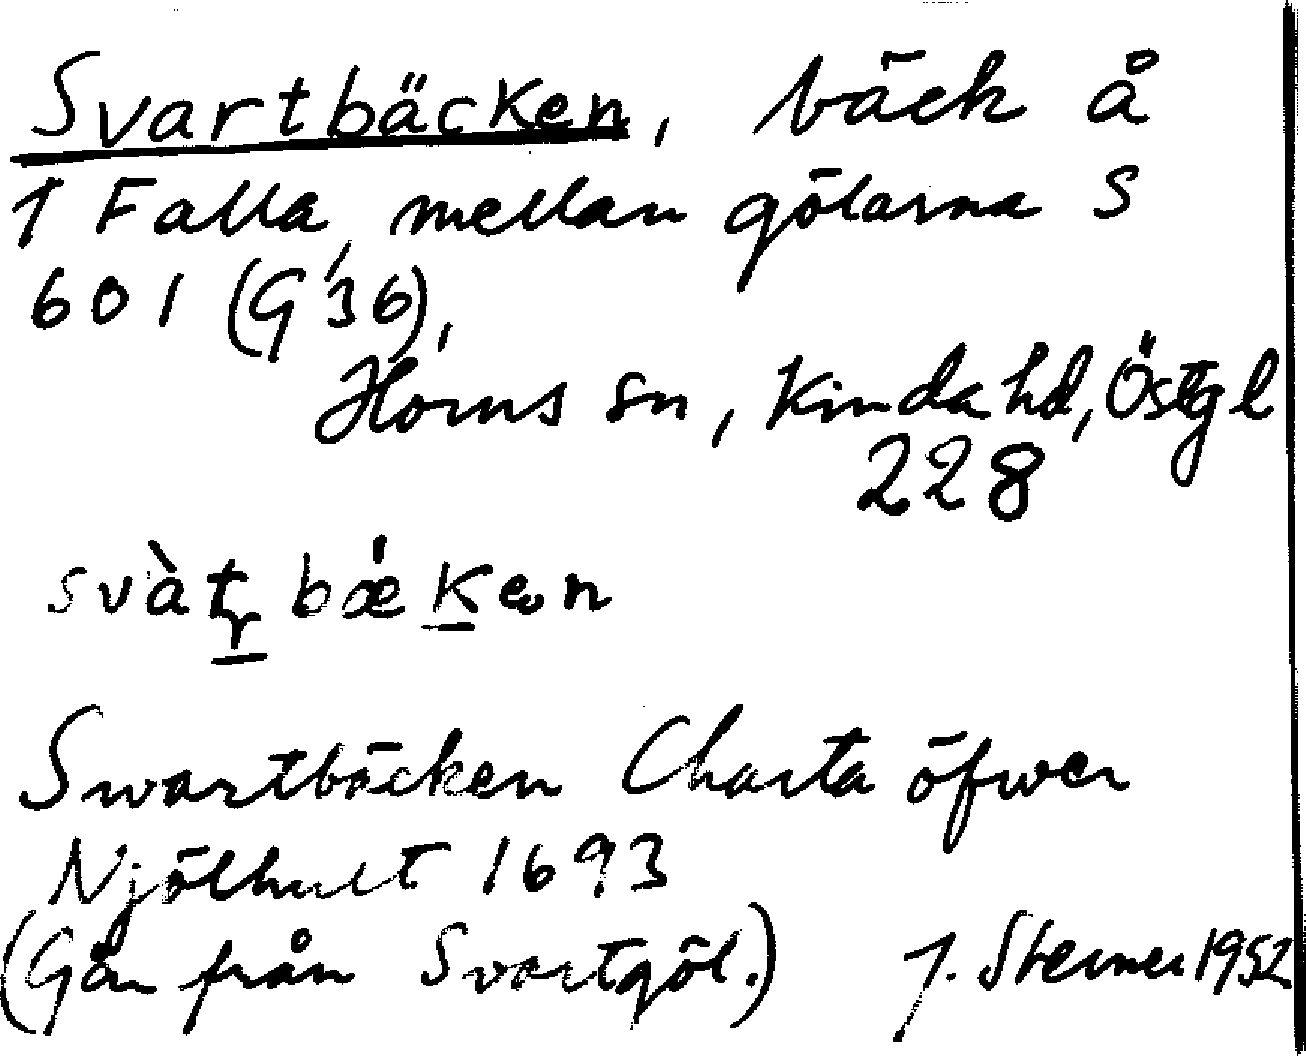 Svartbäcken, bäck å
1 Falla, mellan gölarna S
601 (G'36),
Horns sn, Kinda hd, Östgl
228
svàt̠r bǽk̠en
Swartbäcken Charta öfwer
Njölhult 1693
(Går från Svartgöl.) J. Sterner 1952